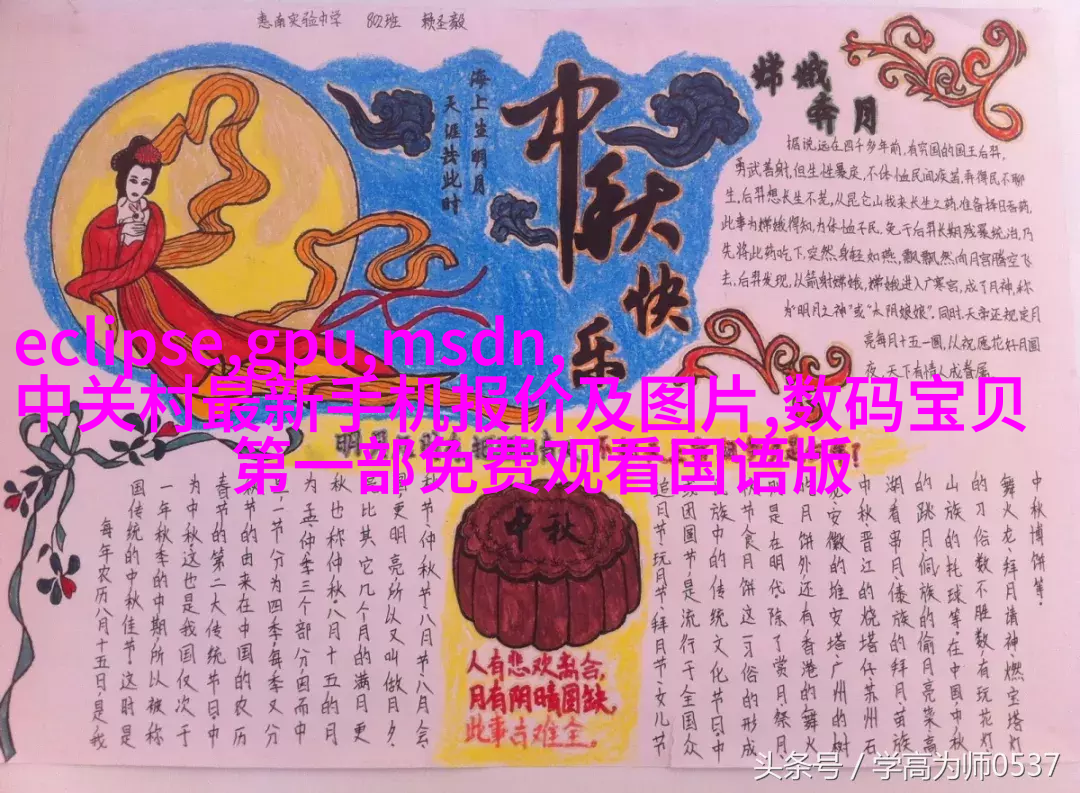 惠南实验中学 802班 赖圣毅
海上生明月
天涯共此时
中秋快乐
嫦娥
奔月
据说,远在四千多年前,有穷国的国王后羿,
勇武善射,但生性暴戾,不体恤民间疾苦,弄得民不聊
生,后羿想长生不老,从昆仑山找来长生之药,准备择日吞药,
此事为嫦娥得知,为体恤平民,免于后羿长期残暴统治,乃
先将此药吃下,突然身轻如燕,飘飘然向月宫腾空飞
去,后羿发现,以箭射嫦娥,嫦娥进入广寒宫,成了月神,称
为“明月之神”或“太阴娘娘”.同时,天帝还规定月
亮每月十五一圆,以祝愿花好月圆
夜,天下有情人成眷属.
eclipse,gpu,msdn,
中关村最新手机报价及图片,数码宝贝
第一部免费观看国语版
每年农历八月十五日,是我
国传统的中秋佳节。这时是
一年秋季的中期,所以被称
为中秋,这也是我国仅次于
春节的第二大传统节日。中
节的由来在中国的农历
一分为四季,每季又分
为孟、仲、季三个部分,因而中
秋也称仲秋。八月十五的月
比其它几个月的满月更
更明亮,所以又叫做月夕
节、仲秋节、八月节、八月会
中秋
人有悲欢离合,
月有阴晴圆缺,
此事古难全。
追月节、玩月节、拜月节、女儿节
团圆节,是流行于全国众
族中的传统文化节日。中
节食月饼这一习俗的形成
是在明代。除了赏月、祭月
月饼外,还有香港的舞火
安徽的堆宝塔、广州的树
中秋、晋江的烧塔仔、苏州石
湖看串月、傣族的拜月、苗族
的跳月、侗族的偷月亮菜、高
山族的托球等.在中国,中秋
的习俗数不胜数,有玩花灯
舞火龙、拜月请神、燃宝塔灯
中秋博饼等.
头条号 / 学高为师0537